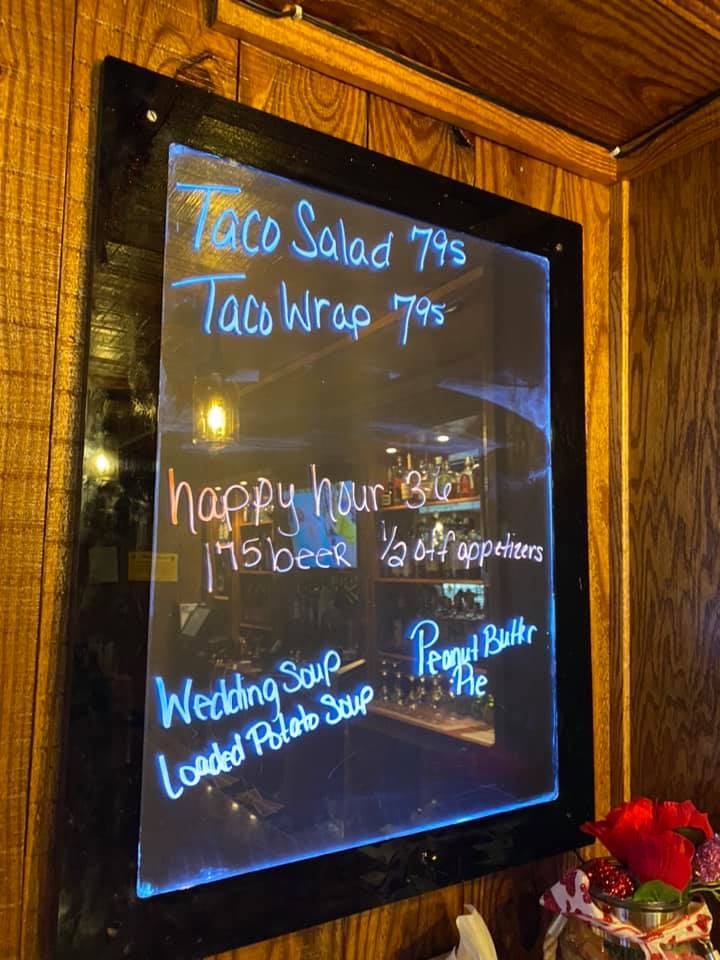 Taco Salad 795
Taco Wrap 795
happy hour 3-6
175 beer 1/2 off appetizers
Wedding Soup
Loaded Potato Soup
Peanut Butter
Pie